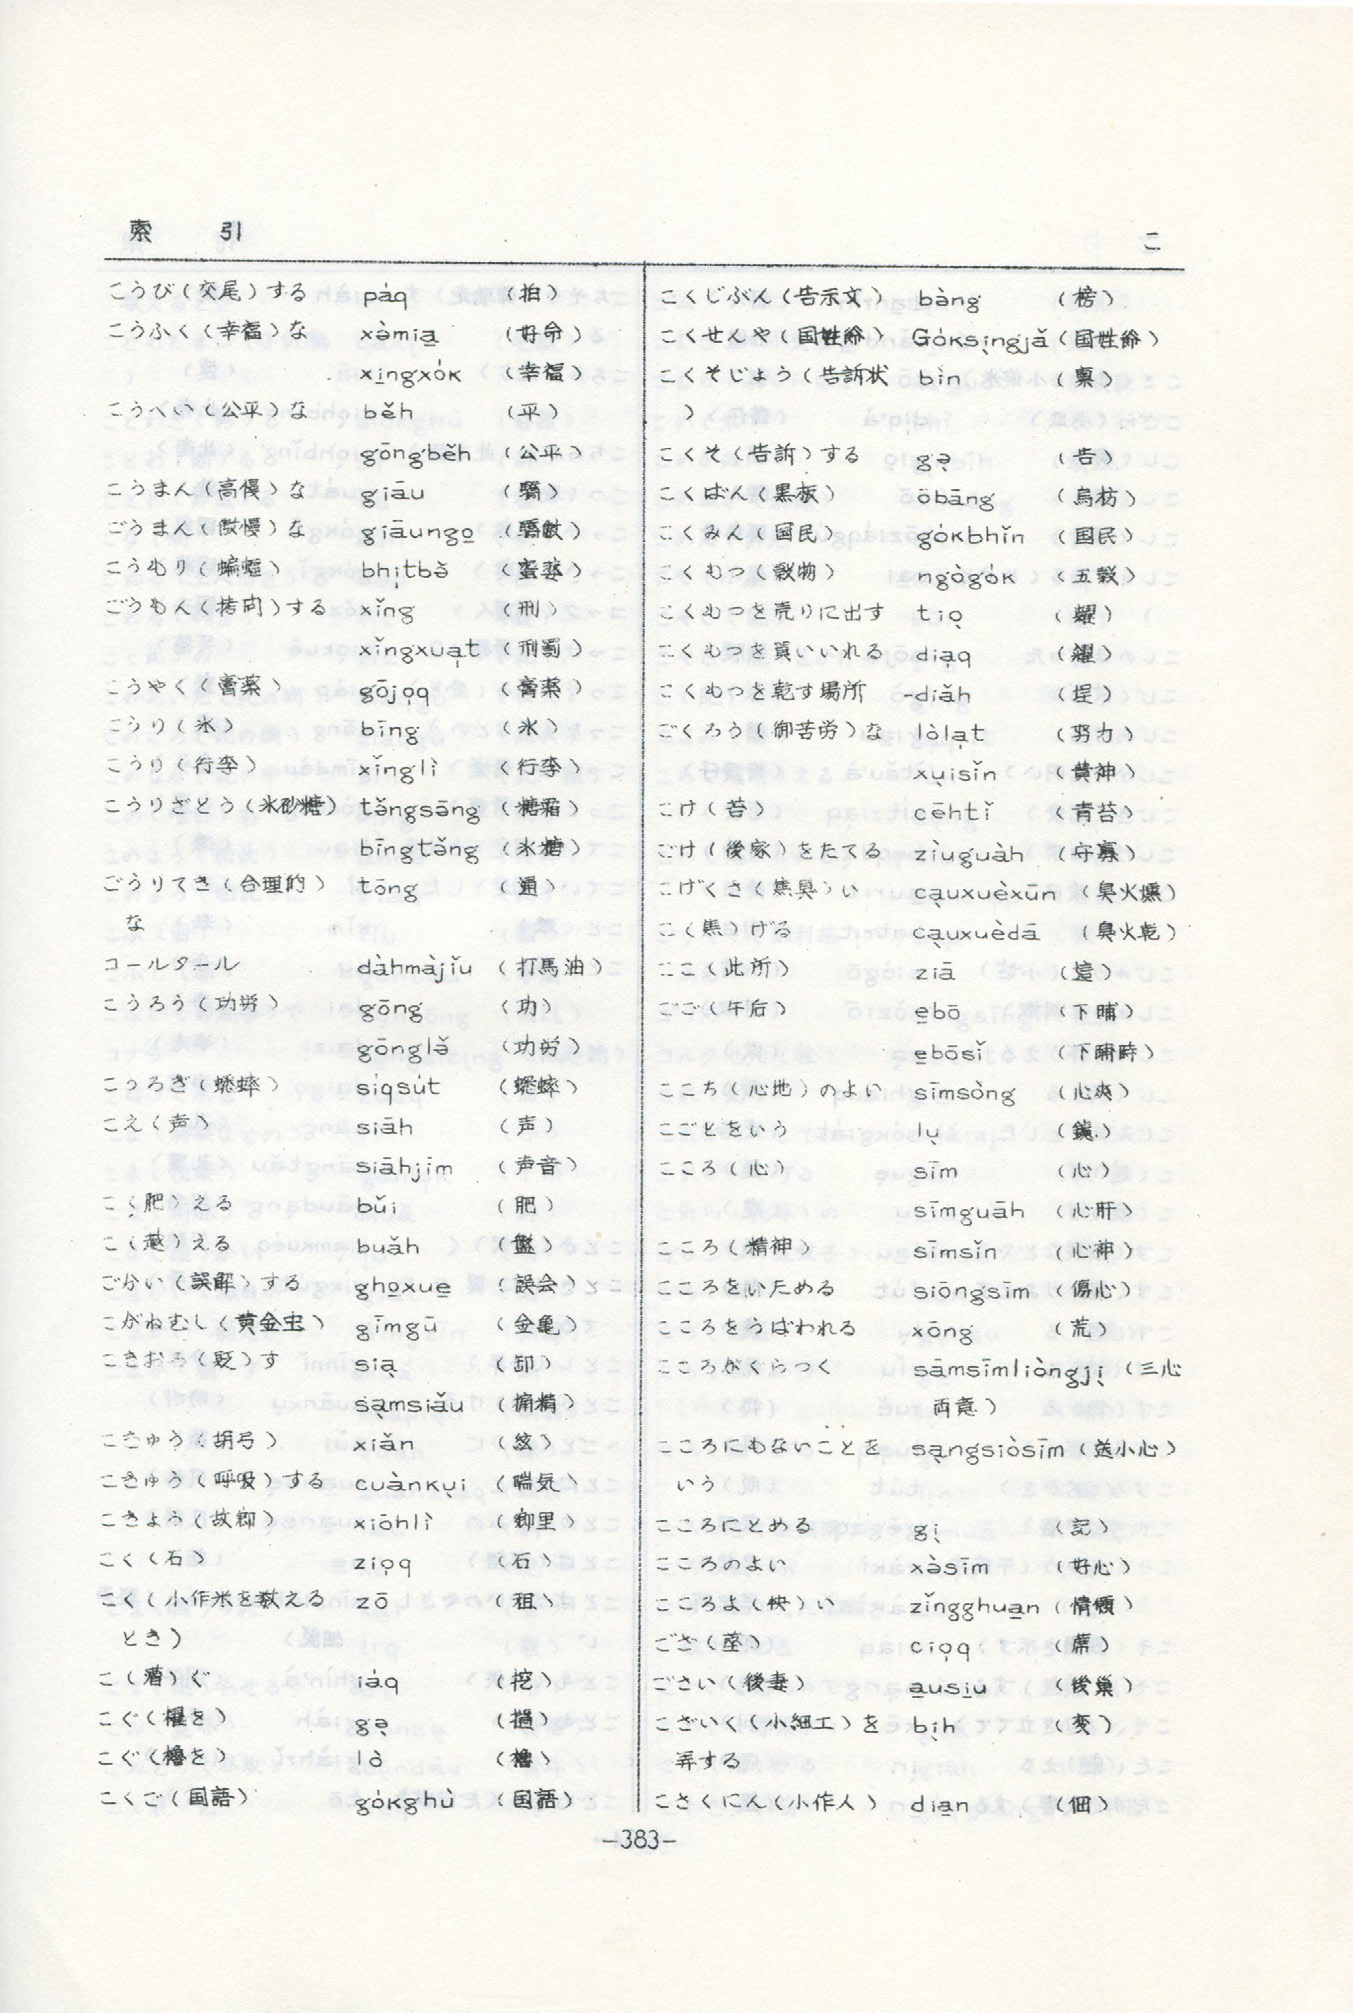 索 引
こ
こうび(交尾)する pa̍q (拍)
こうふく(幸福)な xə̀mia̱ (好命)
xi̱ngxo̍k (幸福)
こうへい(公平)な bě̌h (平)
gōngběh (公平)
こうまん(高慢)な giāu (驕)
ごうまん(傲慢)な giāungo̱ (驕敖)
こうもり(蝙蝠) bhi̩tbə̌ (蜜婆)
ごうもん(拷問)する xǐng (刑)
xǐngxua̩t (刑罰)
こうやく(膏薬) gōjo̩q (膏薬)
こうり(氷) bīng (氷)
こうり(行李) xǐnglì (行李)
こうりざとう(氷砂糖) tə̌ngsə̄ng (糖霜)
bīngtə̌ng (氷糖)
ごうりてき(合理的) tōng (通)
な
コールタール dàhmàjǐu (打馬油)
こうろう(功労) gōng (功)
gōnglə̌ (功労)
こうろぎ(蟋蟀) si̍qsu̍t (蟋蟀)
こえ(声) siāh (声)
siāhjīm (声音)
こ(肥)える bǔi (肥)
こ(越)える buǎh
ごかい(誤解)する gho̱xue̱ (誤会)
こがねむし(黄金虫) gīmgū (金亀)
こきおろ(貶)す sia̩ (卸)
sa̩msiǎu
こきゅう(胡弓) xiǎn (絃)
こきゅう(呼吸)する cuànku̩i (喘気)
こきょう(故郷) xiōhlì (郷里)
こく(石) zio̩q (石)
こく(小作米を数える zō (租)
とき)
こ(漕)ぐ ia̍q (挖)
こぐ(櫂を) gə̩ (撾)
こぐ(櫓を) lò (櫓)
こくご(国語) go̍kghù (国語)
こくじぶん(告示文) bàng (榜)
こくせんや(国姓爺) Go̍ksi̩ngjǎ (国姓爺)
こくそじょう(告訴状 bìn (稟)
)
こくそ(告訴)する gə̩ (告)
こくばん(黒板) ōbāng (烏枋)
こくみん(国民) go̍kbhǐn (国民)
こくもつ(穀物) ngògo̍k (五穀)
こくもつを売りに出す tio̩ (糶)
こくもつを買いいれる dia̩q (糴)
こくもつを乾す場所 -diǎh (埕)
ごくろう(御苦労)な lòla̩t (努力)
xu̩isǐn (費神)
こけ(苔) cēhtǐ (青苔)
ごけ(後家)をたてる zìuguàh (守寡)
こげくさ(焦臭)い ca̩uxuèxūn (臭火燻)
こ(焦)げる ca̩uxuèdā (臭火乾)
ここ(此所) ziā (這)
ごご(午后) e̱bō (下晡)
e̱bōsǐ (下晡時)
ここち(心地)のよい sīmsòng (心爽)
こごとをいう lu̩
こころ(心) sīm (心)
sīmguāh (心肝)
こころ(精神) sīmsǐn (心神)
こころをいためる siōngsīm (傷心)
こころをうばわれる xōng (荒)
こころがぐらつく sāmsīmliòngji̩ (三心
両意)
こころにもないことを sa̩ngsiòsīm (送小心)
いう
こころにとめる gi̩ (記)
こころのよい xə̀sīm (好心)
こころよ(快)い zǐngghua̱n (情願)
ござ(蓙) cio̩q (蓆)
ごさい(後妻) a̱usi̱u (後巣)
こざいく(小細工)を bi̩h (変)
弄する
こさくにん(小作人) dia̱n (佃)
-383-